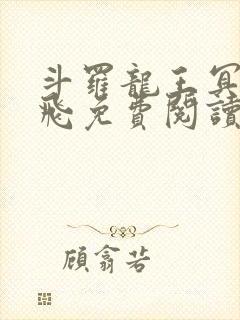 斗羅龍王冥
飛免費閱讀
顧翕若